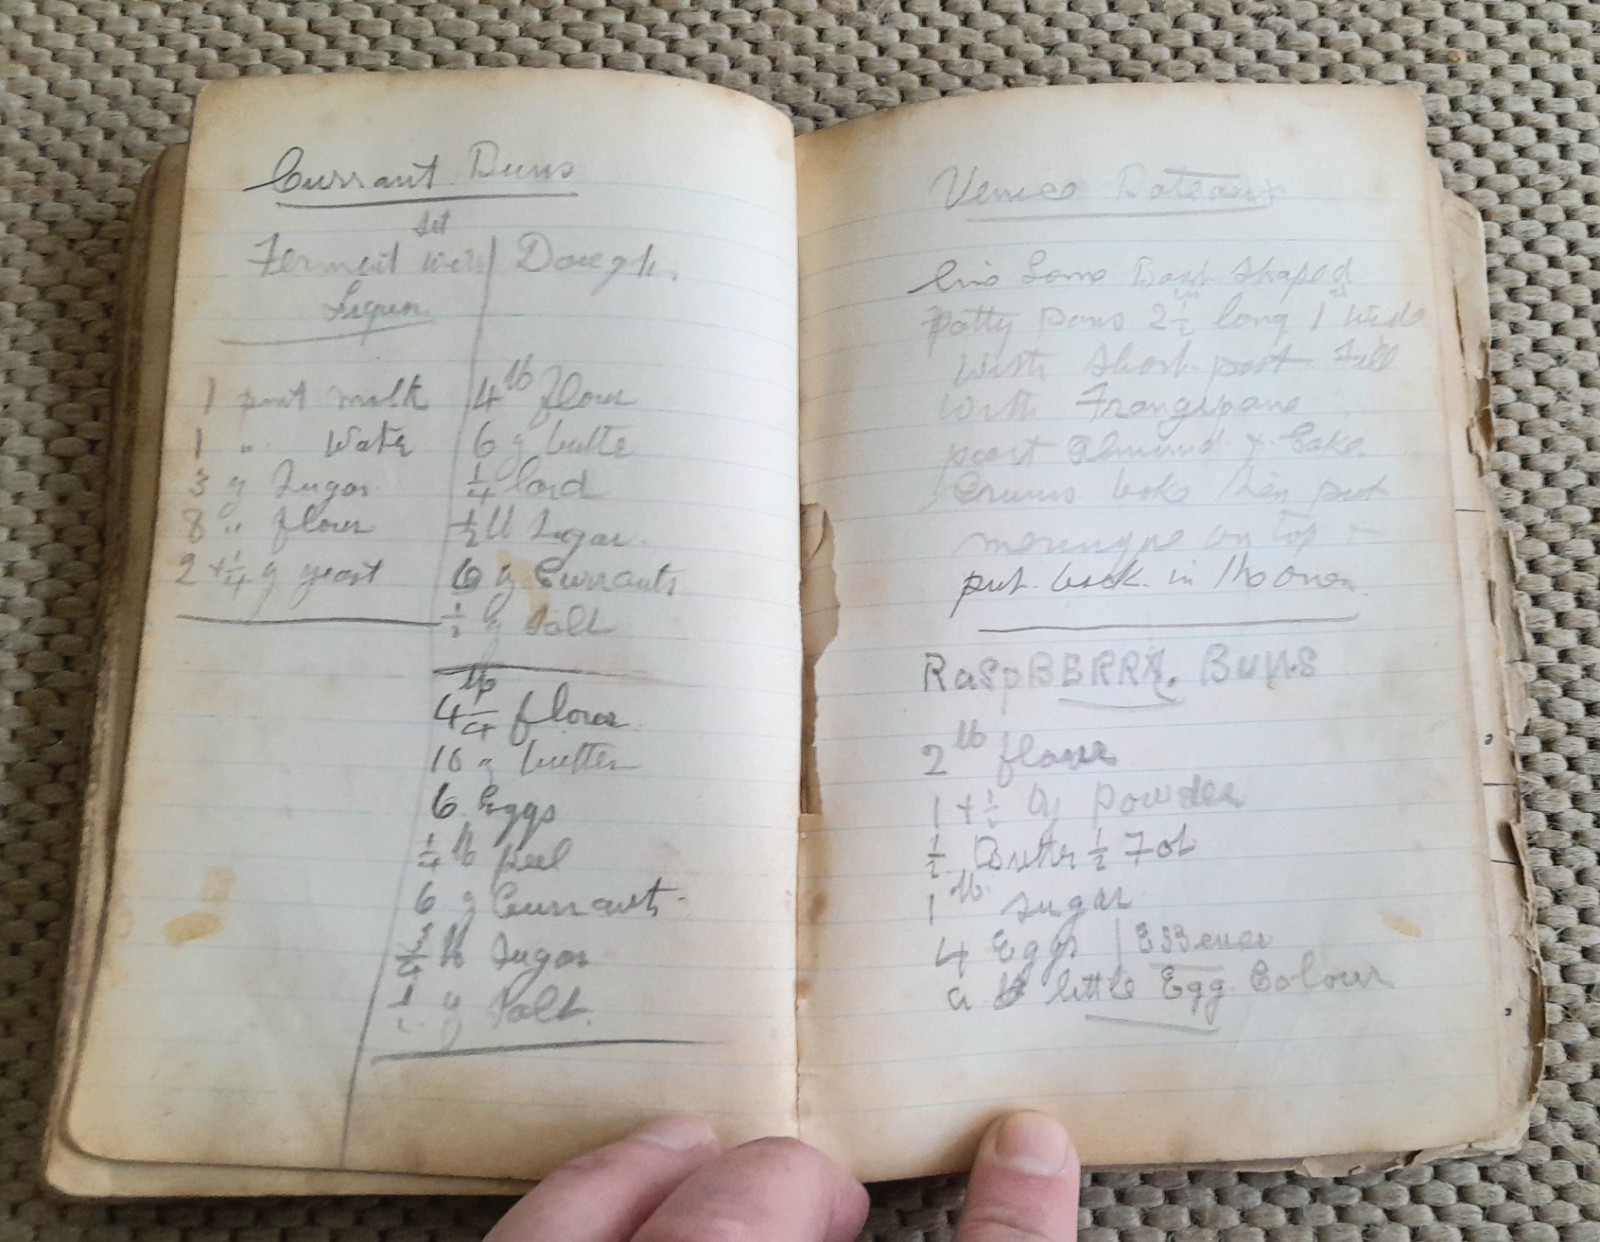 Currant Buns
Set
Ferment with
Liquor
1 pint milk
1 " Wate
3 oz Sugar
8 " flour
2 + 1/4 oz yeast
Dough.
4 lb flour
6 oz butte
1/4 lard
1/2 lb Sugar
6 oz Currants
1/2 oz Salt
4 1/4 lb flour
10 oz butter
6 Eggs
1/4 lb peel
6 oz Currants
lb Sugar
oz Salt.
Venice
line Some Boat Shaped
patty pans 2 1/2 in long 1 in Wide
With Short past Fill
With Frangipane
part Almond + Cake
Crums bake then put
meringue on top +
put back in the oven.
RaspBERRY. BUNS
2 lb flour
1 + 1/2 oz Powder
1/2 Butter 1/2 Fat
1 lb sugar
4 Eggs | Essence
a little Egg Colour